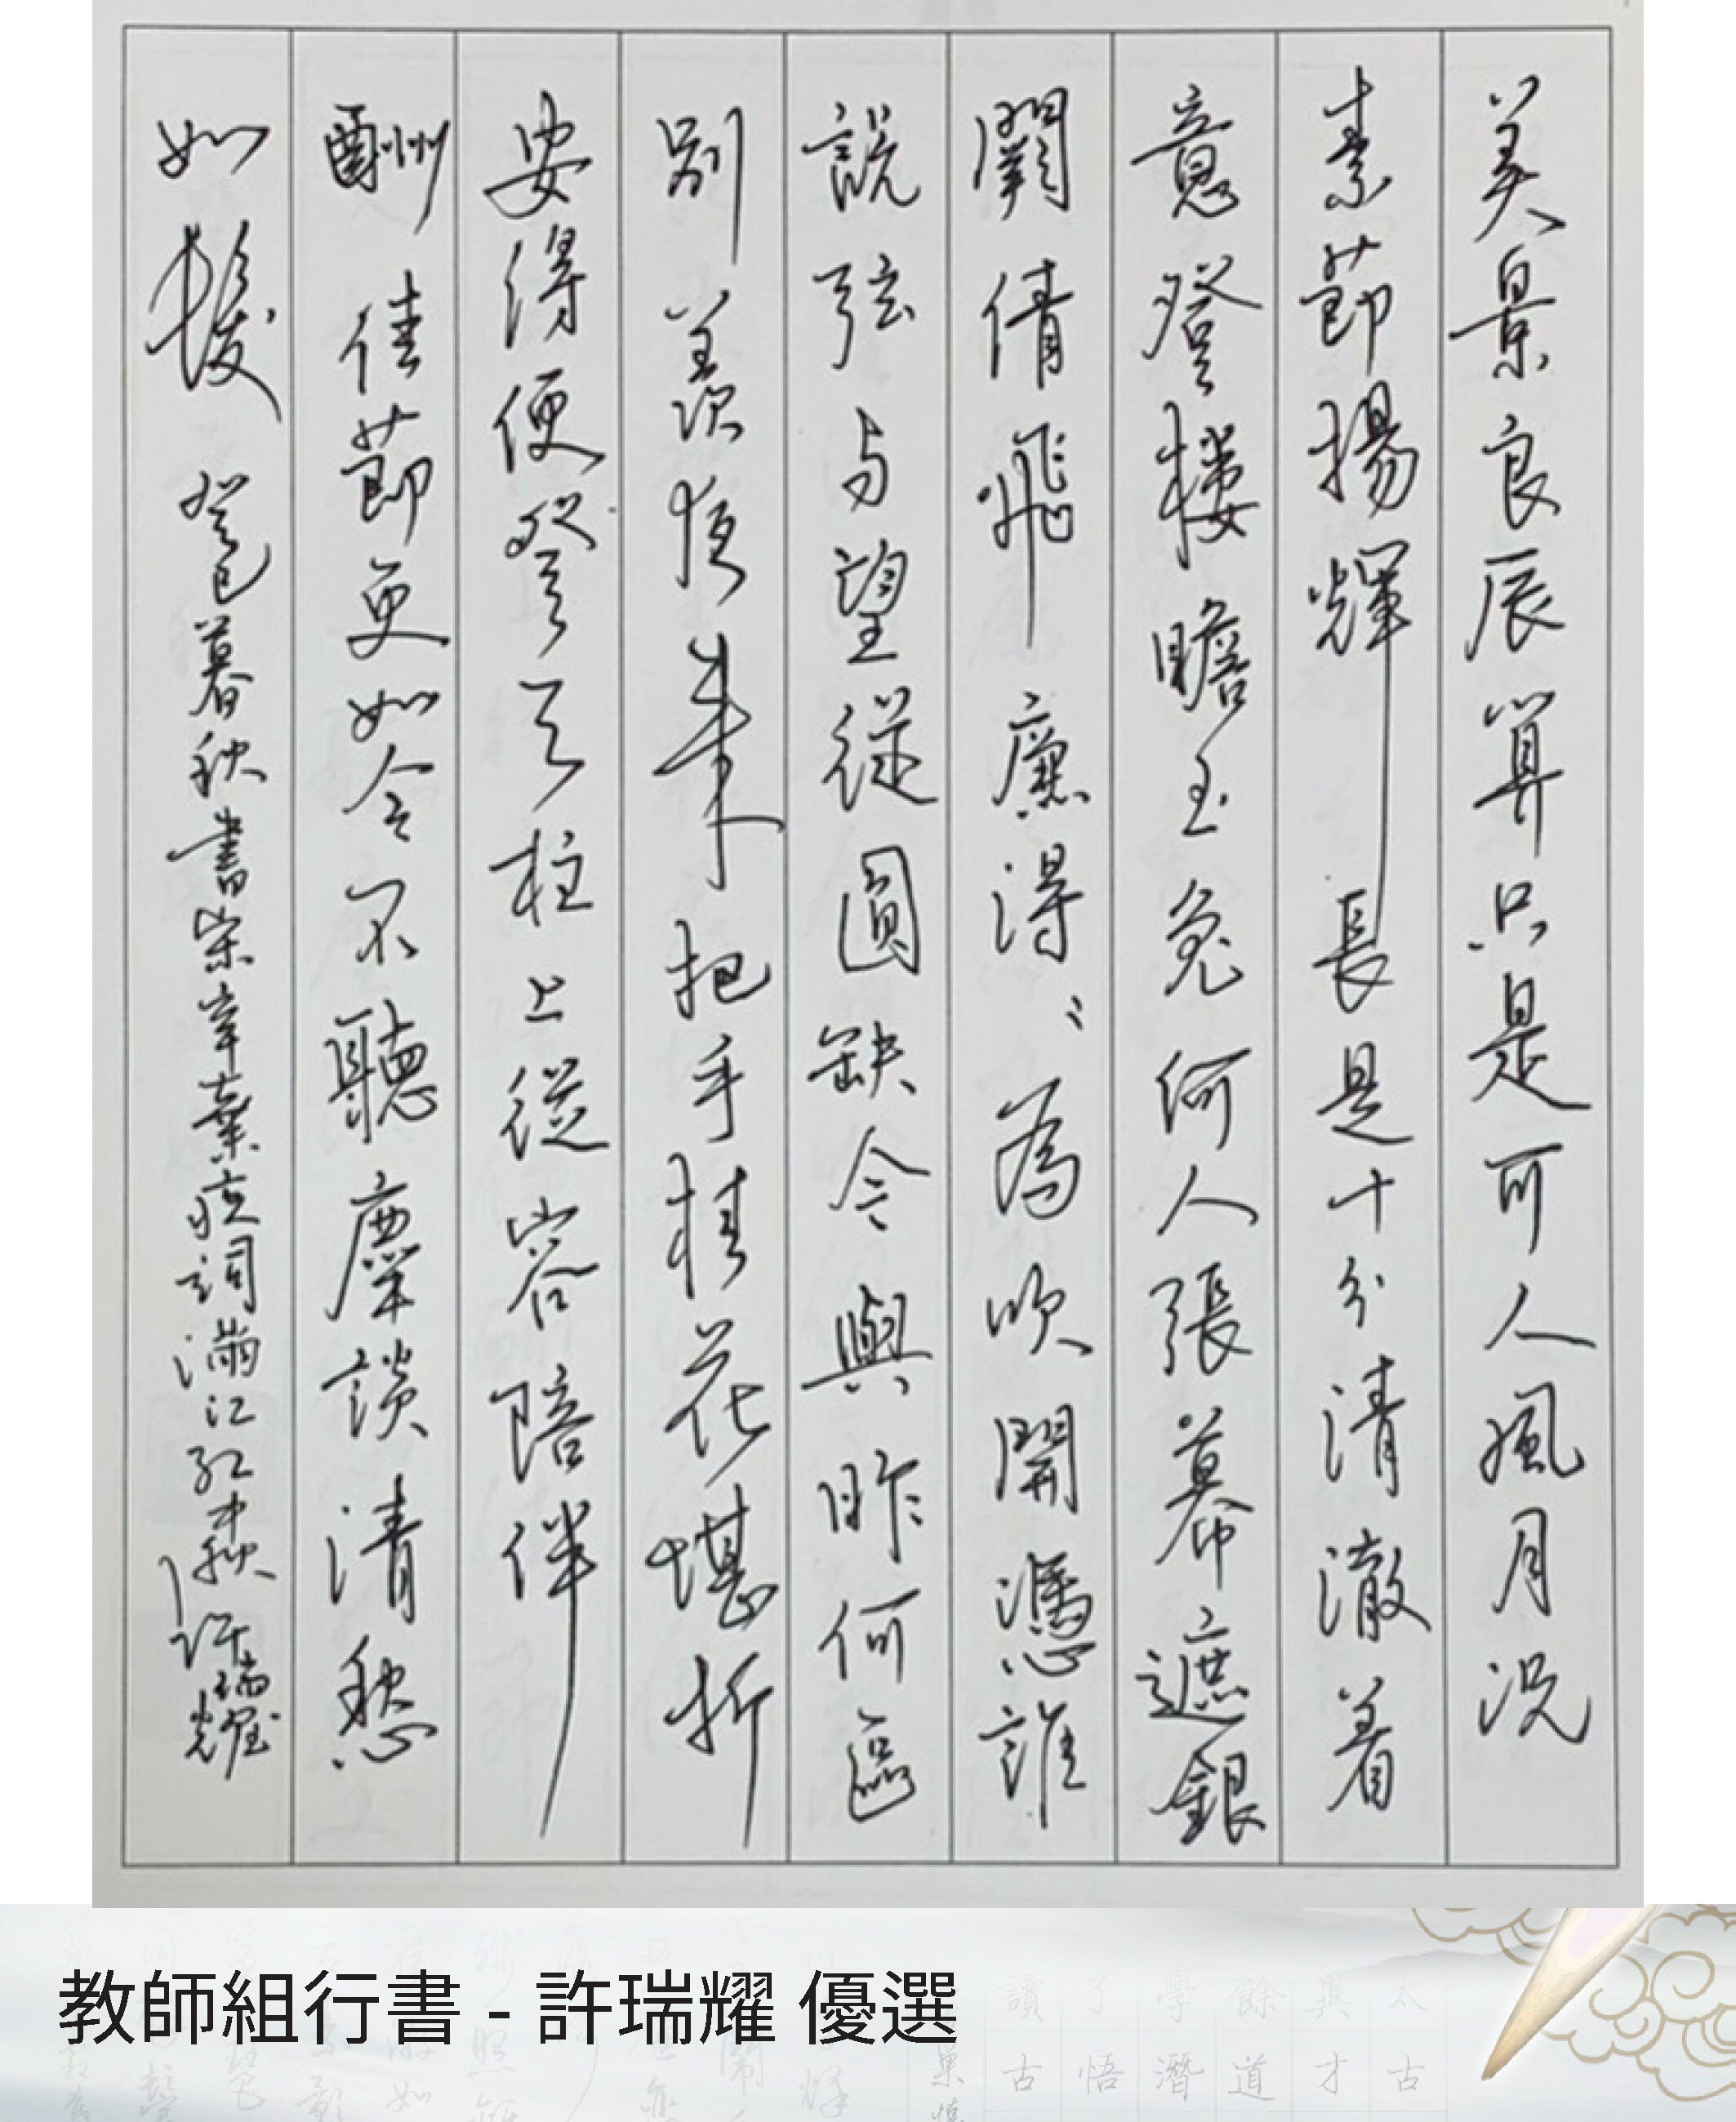 美景良辰算只是可人風月況
素節揚輝長是十分清澈着
意登樓瞻玉兔何人張幕遮銀
闕倩飛廉得得為吹開憑誰
說弦与望從圓缺今與昨何區
別羨夜來把手桂花堪折
安得便登天柱上從容陪伴
酬佳節更如今不聽塵談清愁
如髮 癸巳暮秋書宋辛棄疾詞滿江紅中秋 許瑞耀
教師組行書 - 許瑞耀 優選